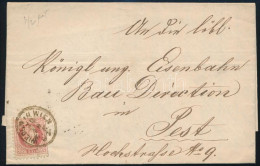 An die löbl.
Königl. ung. Eisenbahn
Bau Direction
in
Pest
Hochstrasse No 9.
WIEN